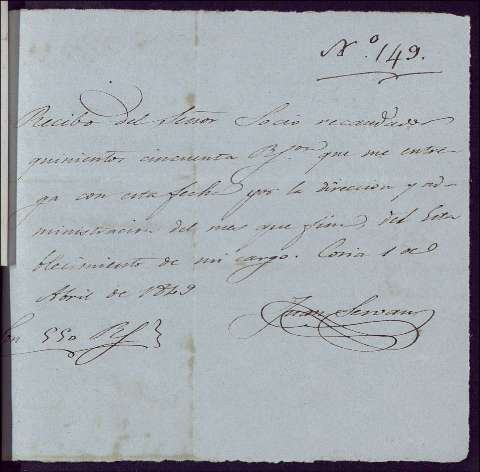 Nº 149.
Recibo del Señor Socio recaudador
quinientos cincuenta Rs.on que me entre-
ga con esta fecha por la direccion y ad-
ministracion del mes que fina, del Esta
blecimiento de mi cargo. Coria 1 de
Abril de 1849
Juan Servan
Son 550 Rs